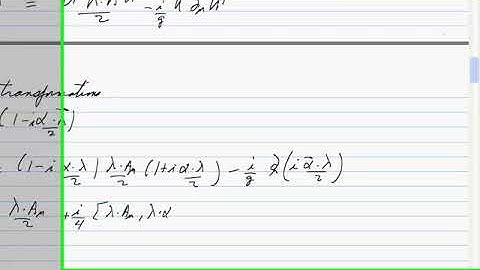 = U λ·Aₘ/2 - i/g U ∂ₘ U†
transformations
(1-iα⃗·λ⃗/2)
(1-i α·λ/2) λ·Aₘ/2 (1+iα·λ/2) - i/g ∂(i α⃗·λ/2)
λ·Aₘ/2 + i/4 [λ·Aₘ, λ·α